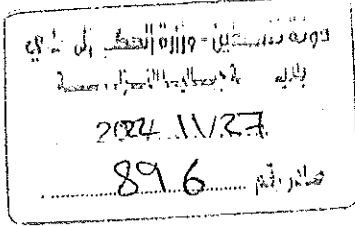 دولة فلسطين - وزارة الحكم المحلي
بلدية
2024 11/27
صادر رقم 896